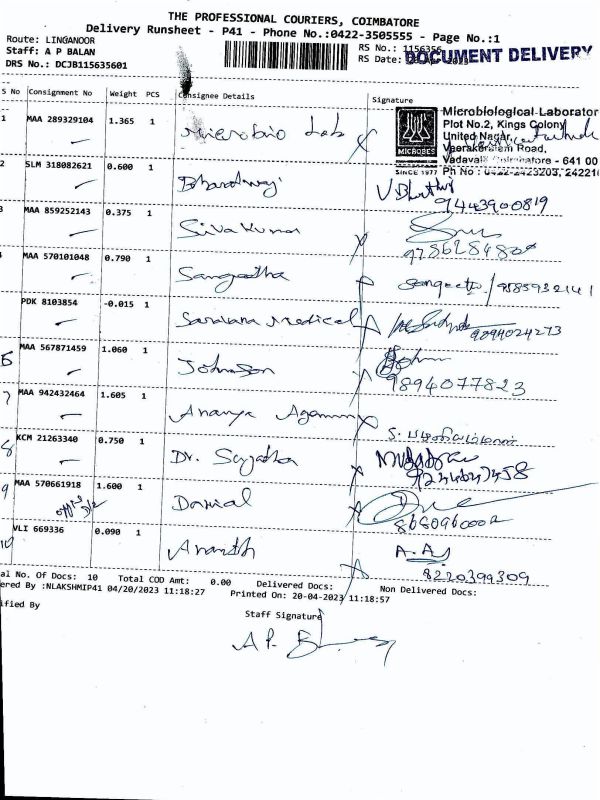 THE PROFESSIONAL COURIERS, COIMBATORE
Delivery Runsheet - P41 - Phone No.:0422-3505555 - Page No.:1
Route: LINGANOOR
Staff: A P BALAN
DRS No.: DCJB115635601
RS No.: 1156356
RS Date:
DOCUMENT DELIVERY
S No Consignment No Weight PCS Consignee Details Signature
1 MAA 289329104 1.365 1 Microbio Lab
Microbiological Laborator
Plot No.2, Kings Colony
United Nagar,
Veerakeralam Road,
Vadavalli Coimbatore - 641 00
Ph No : 0422-2423203, 242216
MICROBES
SINCE 1977
2 SLM 318082621 0.600 1 Bharathwaj
9443900819
3 MAA 859252143 0.375 1 Sivakumar
4 MAA 570101048 0.790 1 Sangeetha Sangeetha/9585932141
PDK 8103854 -0.015 1 Saravana Medical
9894024273
MAA 567871459 1.060 1 Johnson John
9894077823
7 MAA 942432464 1.605 1 Ananya
8 KCM 21263340 0.750 1 Dr. Sujatha
9 MAA 570661918 1.600 1 Danial
8680960002
10 VLI 669336 0.090 1 Ananth A.A
8220399309
al No. Of Docs: 10 Total COD Amt: 0.00 Delivered Docs: Non Delivered Docs:
ered By :NLAKSHMIP41 04/20/2023 11:18:27 Printed On: 20-04-2023 11:18:57
ified By
Staff Signature
A P. B